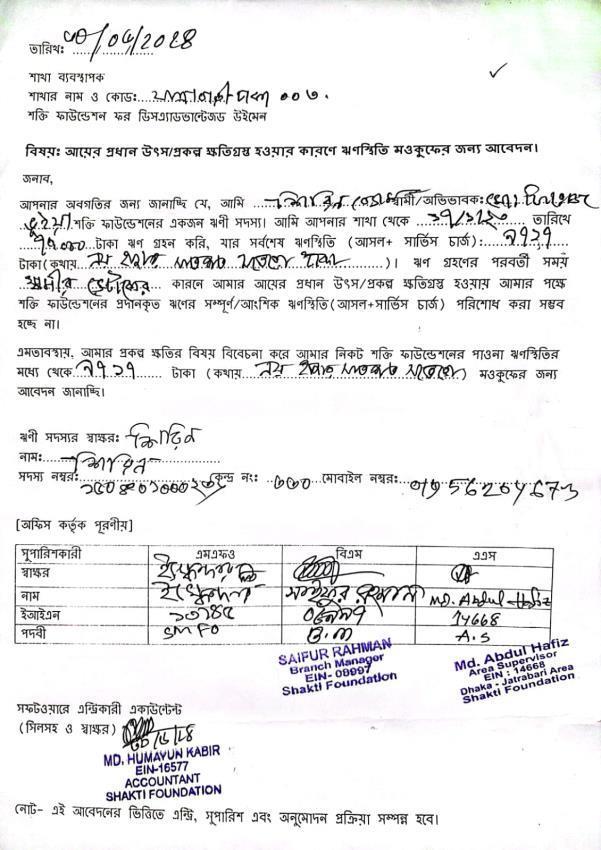 তারিখ:
শাখা ব্যবস্থাপক
শাখার নাম ও কোড: ০০৩.
শক্তি ফাউন্ডেশন ফর ডিসএ্যাডভান্টেজড উইমেন
বিষয়: আয়ের প্রধান উৎস/প্রকল্প ক্ষতিগ্রস্ত হওয়ার কারণে ঋণস্থিতি মওকুফের জন্য আবেদন।
জনাব,
আপনার অবগতির জন্য জানাচ্ছি যে, আমি স্বামী/অভিভাবক:
শক্তি ফাউন্ডেশনের একজন ঋণী সদস্য। আমি আপনার শাখা থেকে তারিখে
টাকা ঋণ গ্রহন করি, যার সর্বশেষ ঋণস্থিতি (আসল+ সার্ভিস চার্জ): ৯৭২৭
টাকা(কথায় নয় হাজার সাতশত )। ঋণ গ্রহণের পরবর্তী সময়
কারনে আমার আয়ের প্রধান উৎস/প্রকল্প ক্ষতিগ্রস্ত হওয়ায় আমার পক্ষে
শক্তি ফাউন্ডেশনের প্রদানকৃত ঋণের সম্পূর্ণ/আংশিক ঋণস্থিতি(আসল+সার্ভিস চার্জ) পরিশোধ করা সম্ভব
হচ্ছে না।
এমতাবস্থায়, আমার প্রকল্প ক্ষতির বিষয় বিবেচনা করে আমার নিকট শক্তি ফাউন্ডেশনের পাওনা ঋণস্থিতির
মধ্যে থেকে ৯৭২৭ টাকা (কথায় নয় হাজার সাতশত ) মওকুফের জন্য
আবেদন জানাচ্ছি।
ঋণী সদস্যর স্বাক্ষর:
নাম:
সদস্য নম্বর: কেন্দ্র নং: মোবাইল নম্বর:
[অফিস কর্তৃক পূরণীয়]
সুপারিশকারী এমএফও বিএম এএস
স্বাক্ষর
নাম MD. Abdul Hafiz
ইআইএন 14668
পদবী SMFO B.M A.S
SAIFUR RAHMAN
Branch Manager
EIN- 08997
Shakti Foundation
Md. Abdul Hafiz
Area Supervisor
EIN : 14668
Dhaka - Jatrabari Area
Shakti Foundation
সফটওয়ারে এন্ট্রিকারী একাউন্টেন্ট
(সিলসহ ও স্বাক্ষর)
MD. HUMAYUN KABIR
EIN-16577
ACCOUNTANT
SHAKTI FOUNDATION
নোট- এই আবেদনের ভিত্তিতে এন্ট্রি, সুপারিশ এবং অনুমোদন প্রক্রিয়া সম্পন্ন হবে।